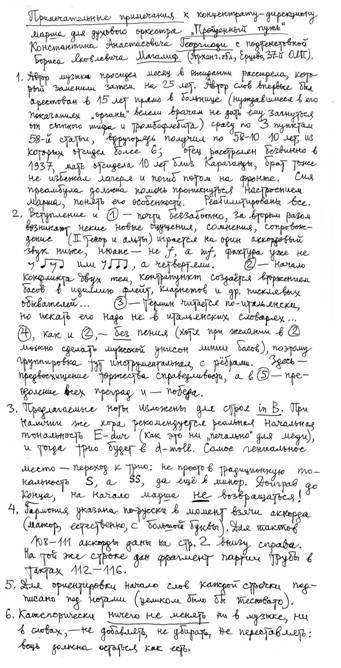 Примечательные примечания к концентрату-дирекциону
марша для духового оркестра „Пройденный путь"
Константина Анастасовича Георгиади с подтекстовкой
Бориса Яковлевича
1. Автор музыки просидел месяц в ожидании расстрела, кото-
рый заменили затем на 25 лет. Автор слов впервые был
арестован в 15 лет прямо в больнице (нуждавшиеся в его
показаниях „органы" велели врачам не дать ему загнуться
от сыпного тифа и тромбофлебита) сразу по 3 пунктам
58-й статьи, получил по 58-10 10 лет, из
которых отсидел более 6; отец расстрелян безвинно в
1937, мать отсидела 10 лет близ Караганды, брат тоже
не избежал лагеря и погиб потом на фронте. Сия
преамбула должна помочь проникнуться настроением
марша, понять его особенности. Реабилитированы все.
2. Вступление и ① – почти беззаботно, за вторым разом
возникают некие новые ощущения, сомнения, сопровож-
дение (II тенор и альты) играется на один аккордовый
звук ниже, нюанс – не f, а mf, фактура уже не
или а четвертями. ② – начало
конфликта двух тем, контрапункт создаётся вторжением
басов в идиллию флейт, кларнетов и др. писклявых
обывателей... ③ – термин читается по-итальянски,
но искать его надо не в итальянских словарях...
④, как и ②, – без пения (хотя при желании в ②
можно сделать мужской унисон линии басов), поэтому
группировка тут инструментальная, с рёбрами. Здесь –
предвосхищение торжества справедливости, а в ⑤ – пре-
одоление всех преград и – победа.
3. Предлагаемые ноты изложены для строя in B. При
наличии же хора рекомендуется реальная начальная
тональность E-dur (как это ни „печально" для меди),
и тогда трио будет в d-moll. Самое гениальное
место – переход к трио: не просто в традиционную то-
нальность S, а SS, да ещё в минор. Доиграв до
конца, на начало марша не возвращаться!
4. Гармония указана по-русски в момент взятия аккорда
(мажор, естественно, с большой буквы). Для тактов
108–111 аккорды даны на стр. 2 внизу справа.
На той же строке дан фрагмент партии трубы в
тактах 112–116.
5. Для ориентировки начало слов каждой строчки под-
писано под нотами (целиком было бы тесновато).
6. Категорически ничего не менять ни в музыке, ни
в словах, – не добавлять, не убирать, не переставлять:
вещь должна остаться как есть.